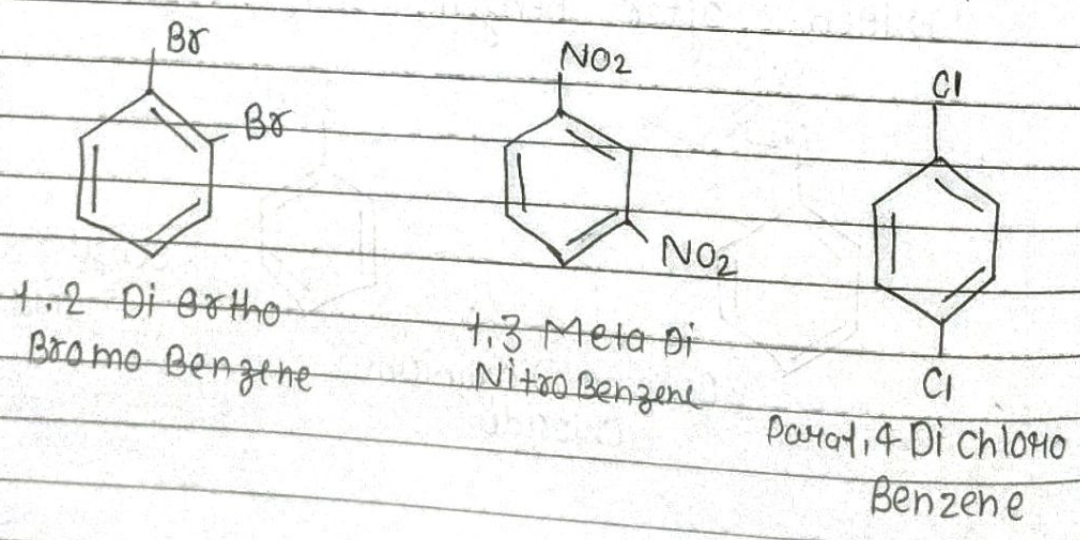 Br
Br
1.2 Di Ortho
Bromo Benzene
NO2
NO2
1,3 Meta Di
Nitro Benzene
Cl
Cl
Para1,4 Di Chloro
Benzene